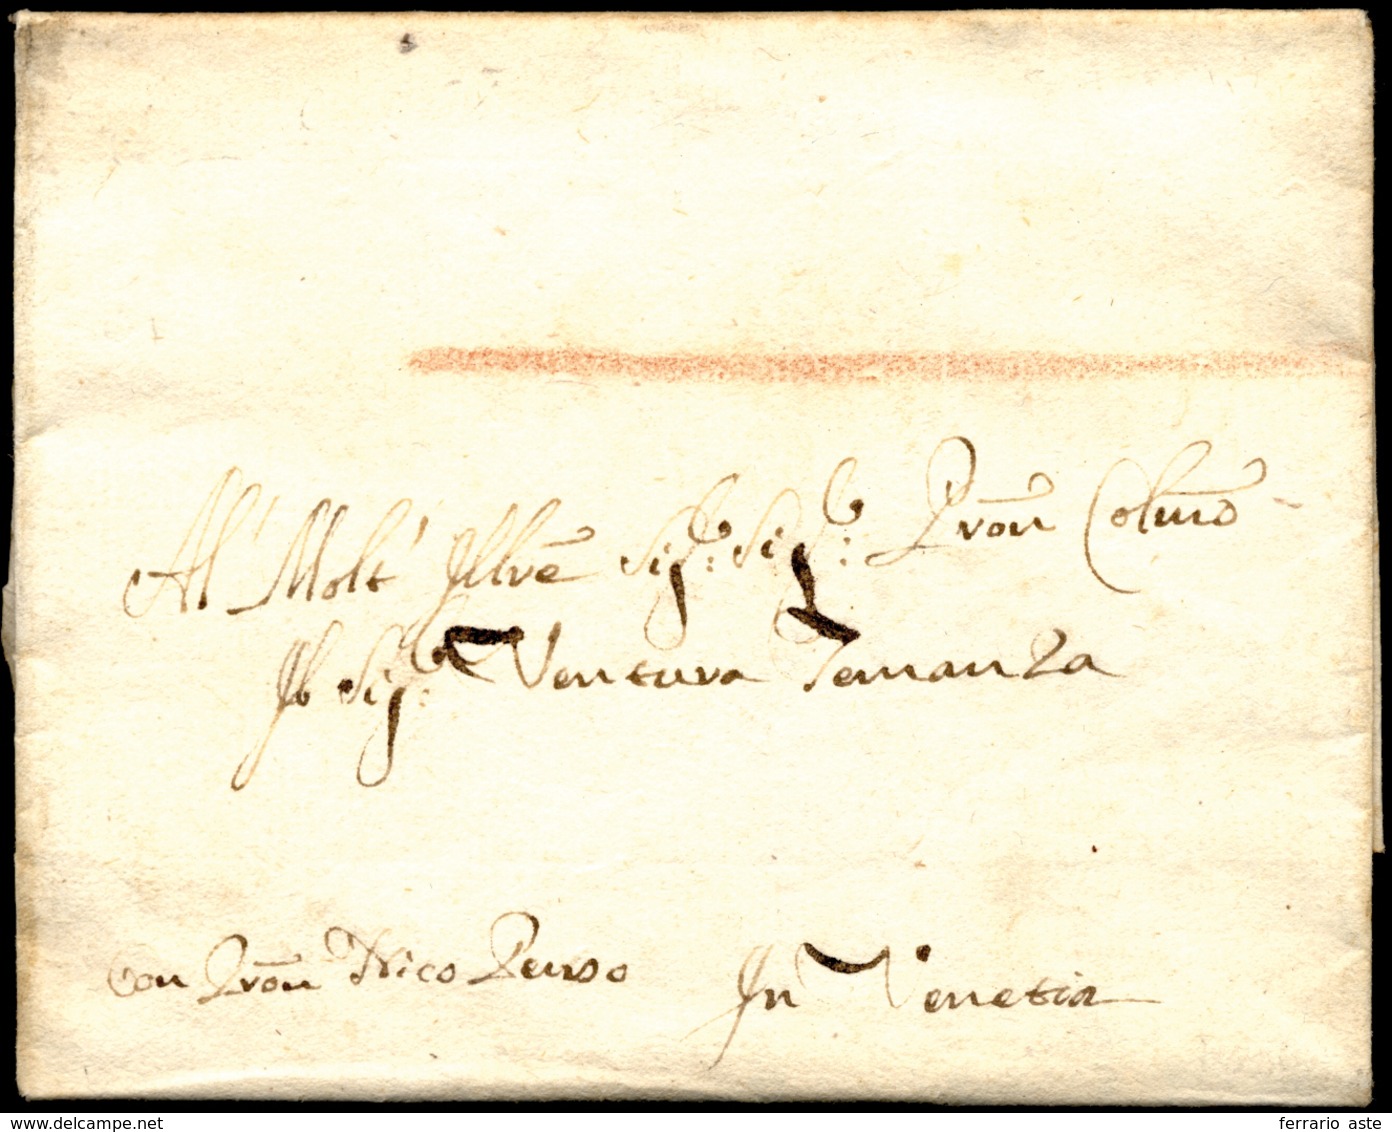 Al' Molt' Illre Sigr: Sigr: Pron Colmo
Il Sigr: Ventura Temanza
con Pron Nico Penso
In Venetia
delcampe.net
ferrario aste